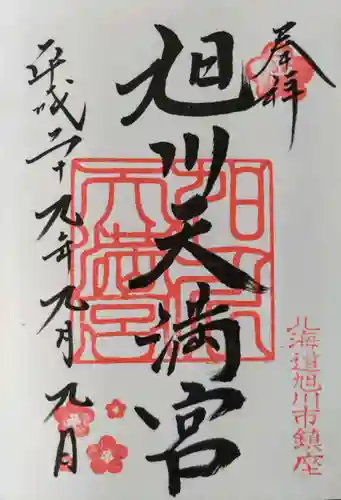 奉拝
旭川天満宮
平成二十九年九月九日
旭川天満宮
北海道旭川市鎮座